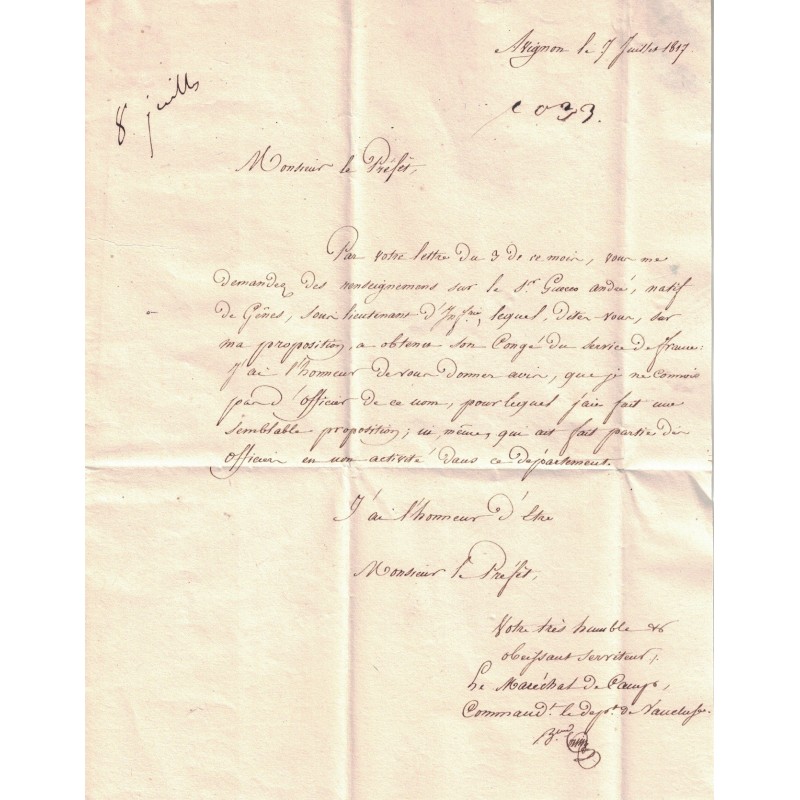 Avignon le 7 Juillet 1817.
8 juillet
1033.
Monsieur le Préfet,
Par votre lettre du 3 de ce mois, vous me
demandez des renseignemens sur le Sr. Gueco andré, natif
de Gênes, sous lieutenant d'Infrie, lequel, dites vous, sur
ma proposition, a obtenu son Congé du service de france:
J'ai l'honneur de vous donner avis, que je ne connois
pas d'officier de ce nom, pour lequel j'aie fait une
semblable proposition; ni même, qui ait fait partie des
officiers en non activité dans ce département.
J'ai l'honneur d'être
Monsieur le Préfet,
Votre très humble &
obeissant serviteur,
Le Maréchal de Camp,
Commandt. le dept. de Vaucluse.
Bon